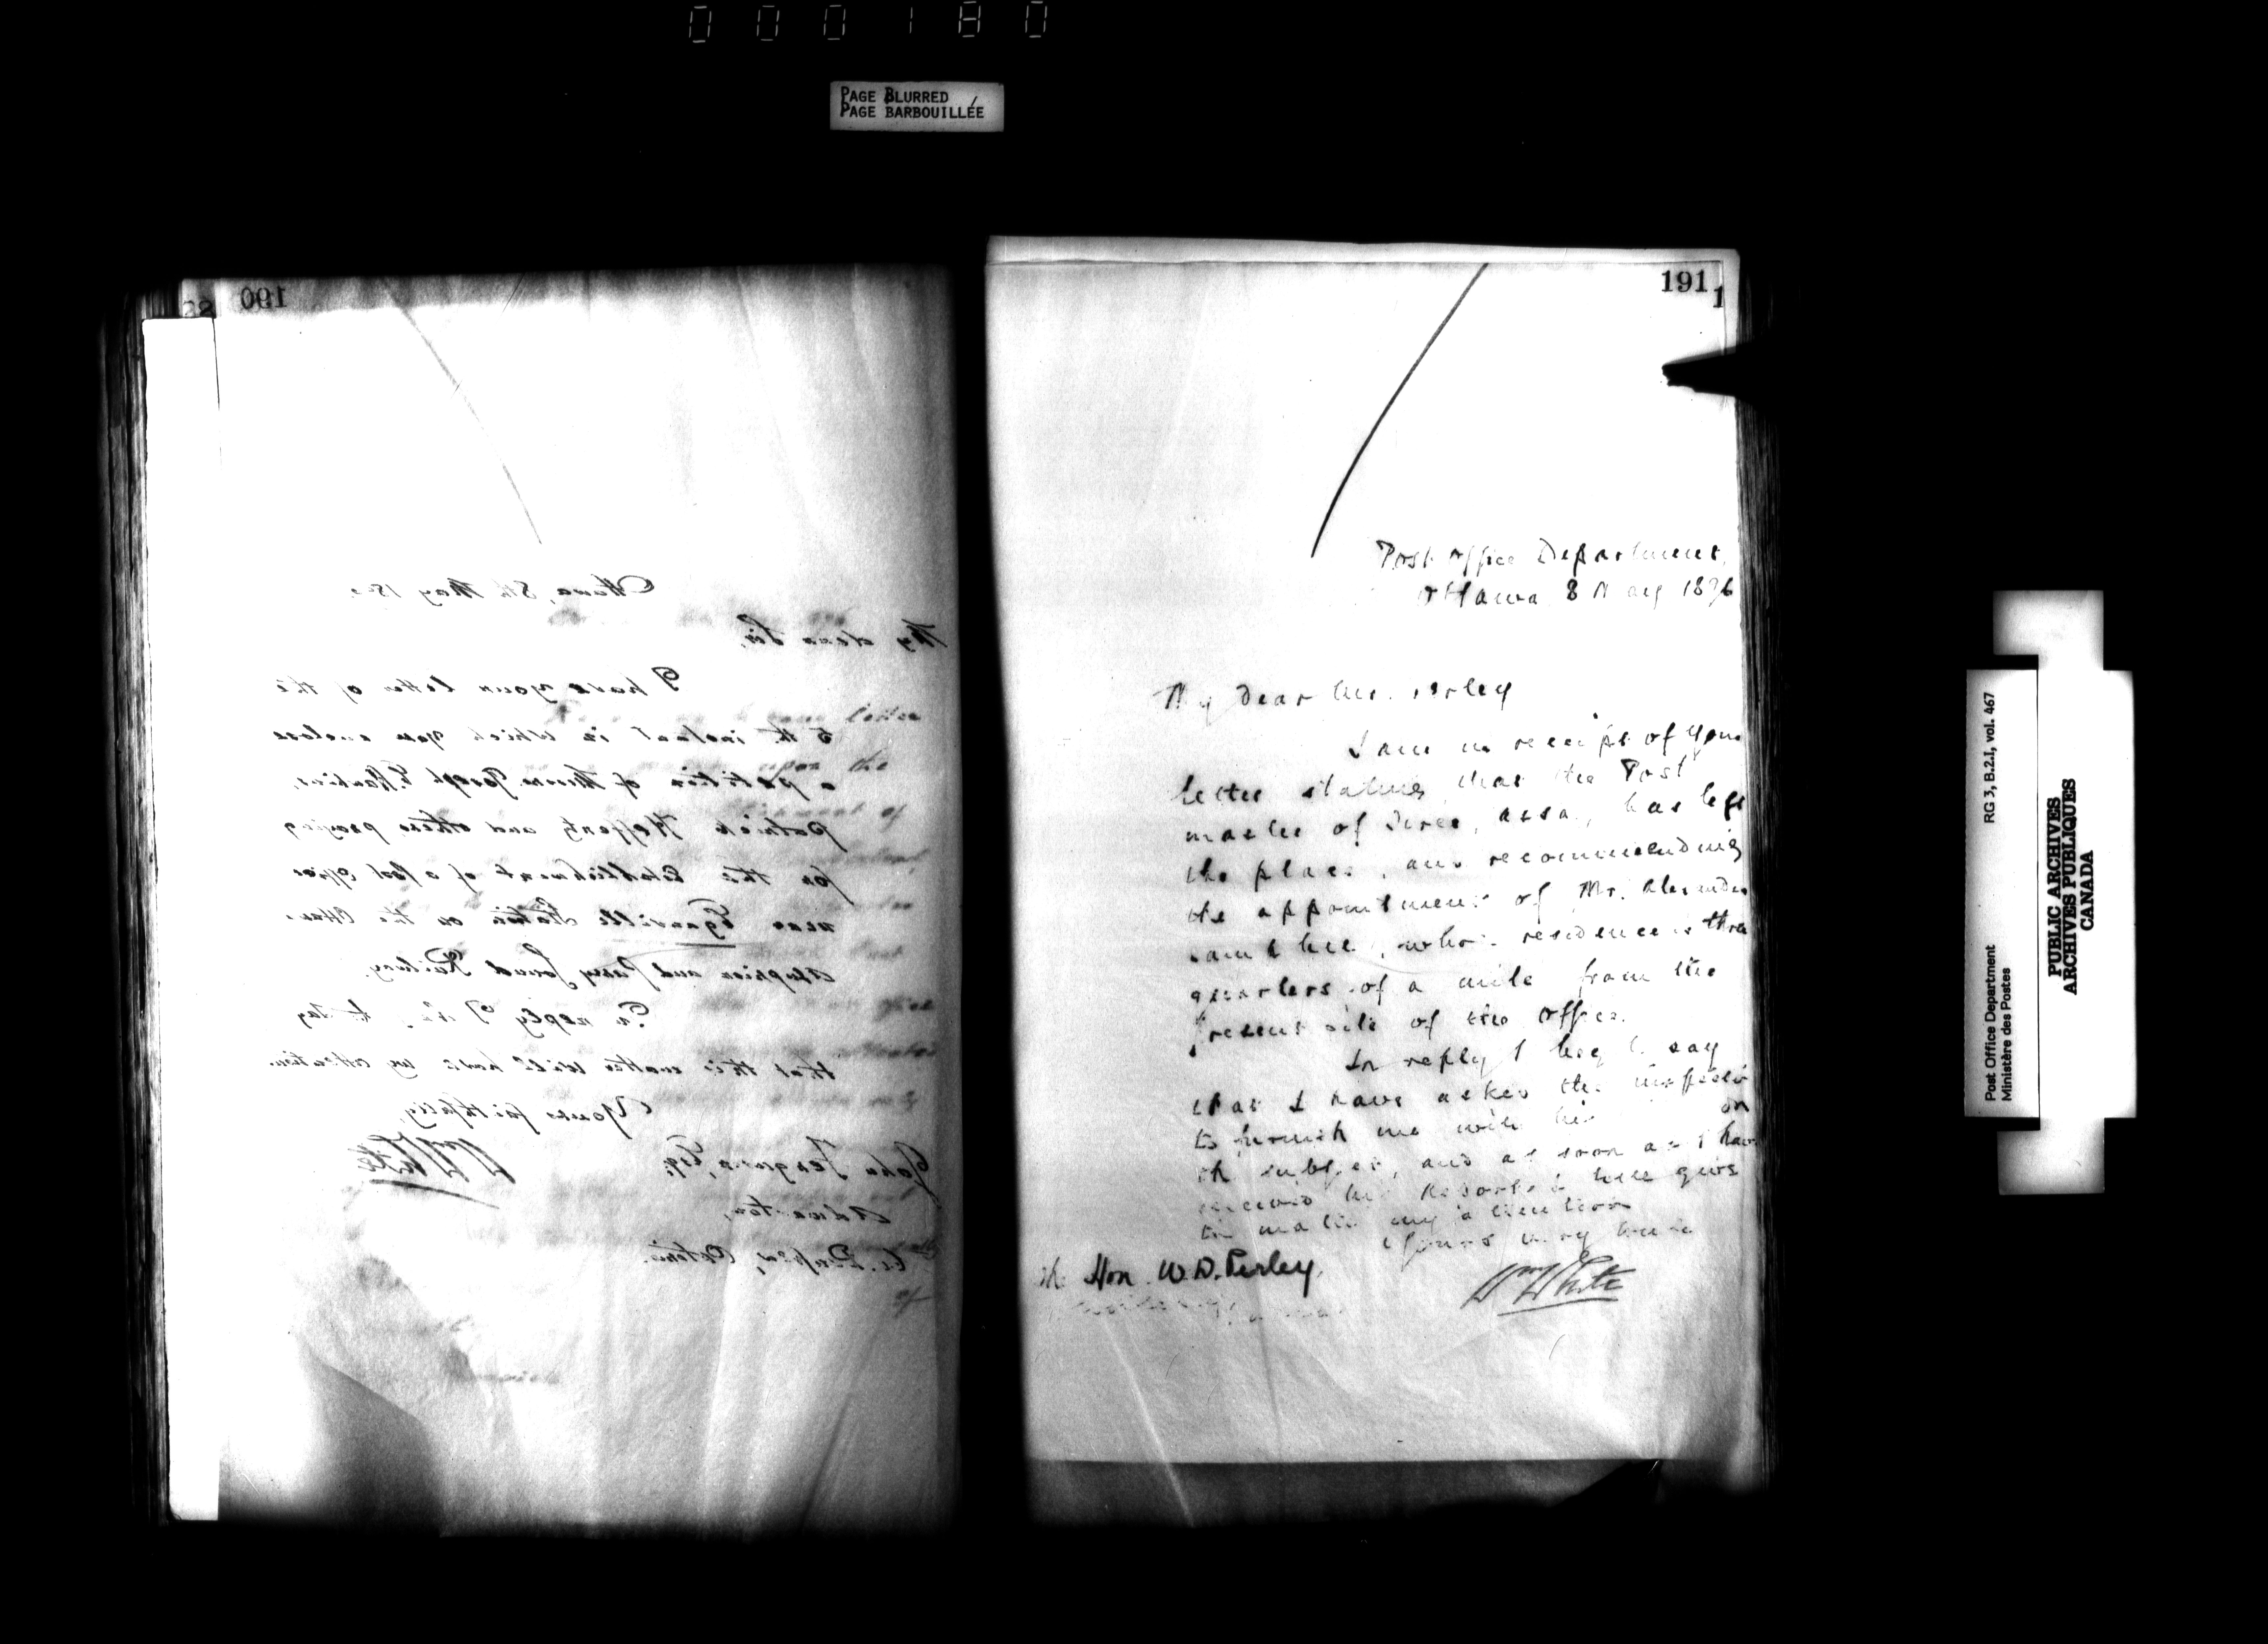 000180
PAGE BLURRED
PAGE BARBOUILLÉE
190
Ottawa, 8th May 18
My dear Sir,
I have your letter of the
5th instant in which you enclose
a petition of Messrs. Joseph
Patrick and others praying
for the establishment of a post office
near Eganville Station on the
Arnprior and Parry Sound Railway.
In reply I to say
that this matter will have my attention.
Yours faithfully,
WmWhite
John Ferguson, Esq.,
Admaston,
Co. Renfrew, Ontario.
191
1
Post Office Department,
Ottawa 8 May 1896
My Dear Mr. Perley
I am in receipt of your
letter stating that the Post
master of Assa., has left
the place, and recommending
the appointment of Mr. Alexander
whose residence is three
quarters of a mile from the
present site of the office.
In reply I beg to say
that I have asked the Inspector
to furnish me with his on
the subject, and as soon as I have
received his Report I will give
the matter my attention
Yours very truly
WmWhite
Hon. W.D. Perley,
Post Office Department
Ministère des Postes
RG 3, B.2.I, vol. 467
PUBLIC ARCHIVES
ARCHIVES PUBLIQUES
CANADA